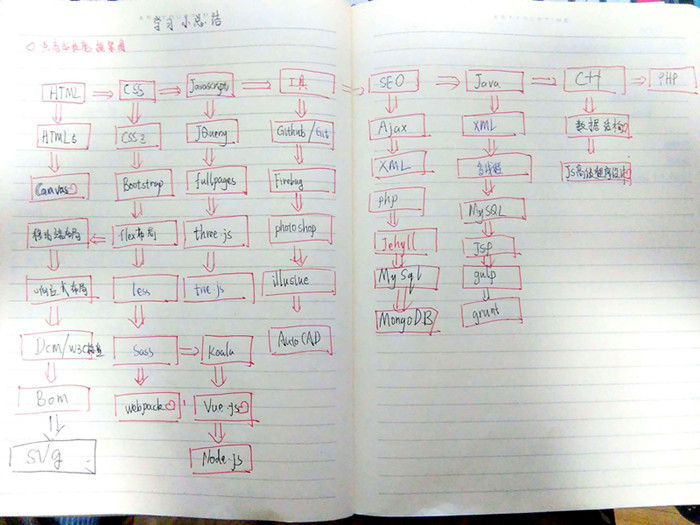 学习小总结
HTML
CSS
Javascript
工具
SEO
Java
C++
PHP
HTML5
CSS3
JQuery
Github/Git
Ajax
XML
数据结构
Canvas
Bootstrap
fullpages
Firebug
XML
JS高级程序设计
移动端布局
flex布局
three.js
photoshop
php
MySQL
响应式布局
less
illuslue
Jehyll
JSP
Dcm/W3C标准
Sass
Koala
AutoCAD
MySql
gulp
Bom
webpack
Vue.js
MongoDB
grunt
SVg
Node.js